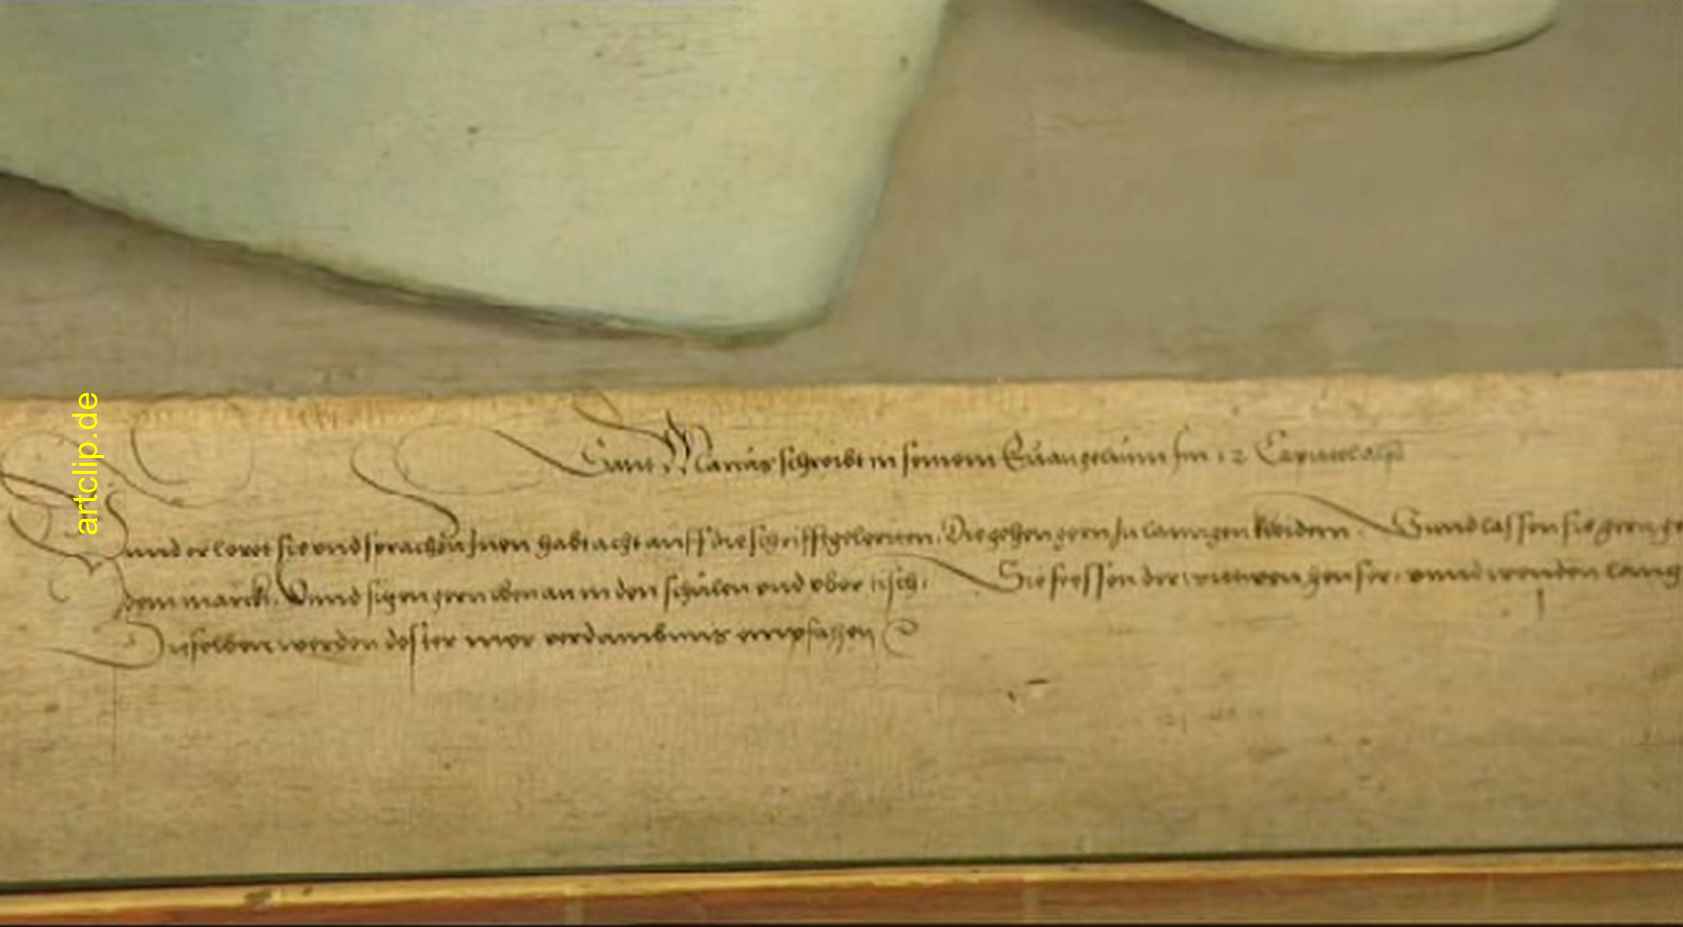 Sant Marcus schreibt in seinem Euangelium Im 12 Capitel also
Unnd er leret sie unnd sprach zu Jnen habt acht auff die schrifftgelerten. Die gehen gern Jn lanngen kleidern. Unnd lassen sie gern
dem marckt. Unnd sitzen gern oben an in den schulen und ober tisch. Sie fressen der wittwen heuser. unnd wenden lang
Dieselben werden dester mer verdambnus empfahen
artclip.de